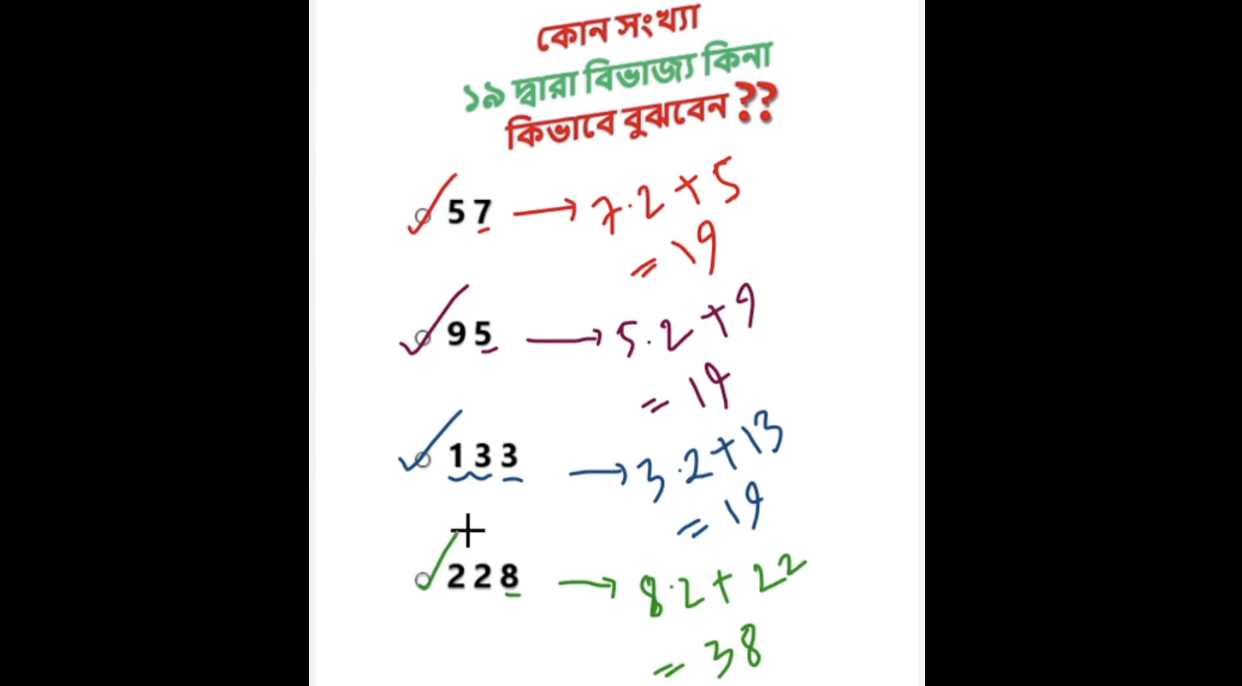 কোন সংখ্যা
১৯ দ্বারা বিভাজ্য কিনা
কিভাবে বুঝবেন ??
57 → 7.2+5
= 19
95 → 5.2+9
= 19
133 → 3.2+13
= 19
228 → 8.2+22
= 38